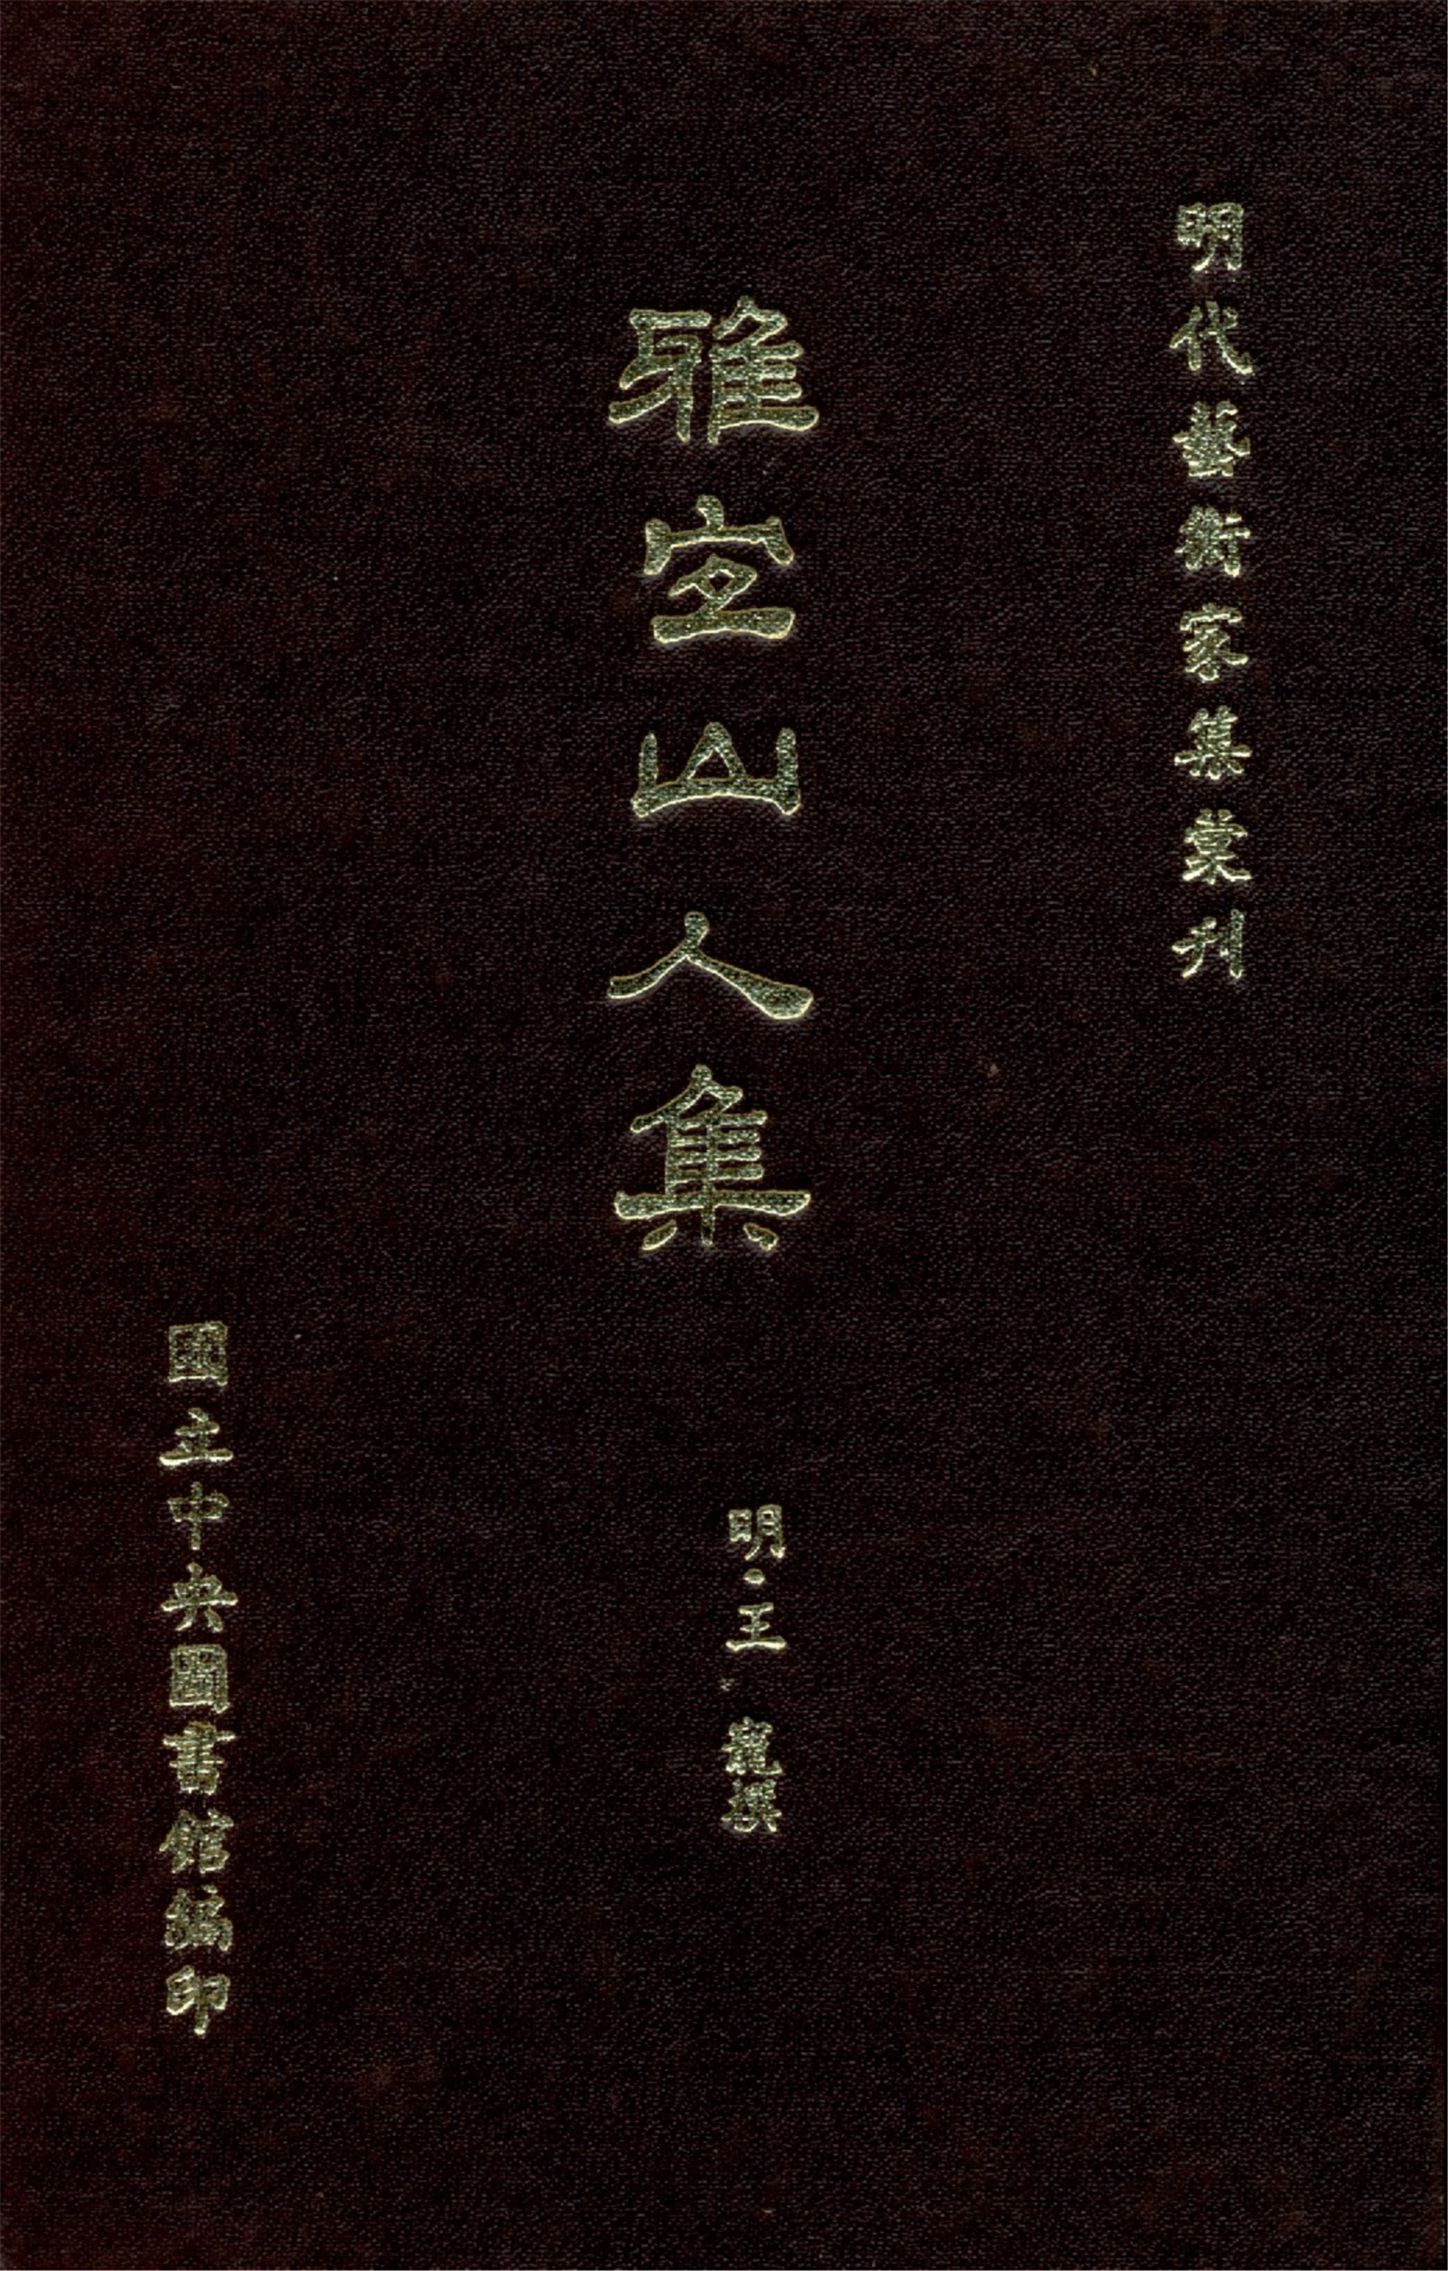 明代藝術家集彙刊
雅宐山人集
明·王 寵撰
國立中央圖書館編印